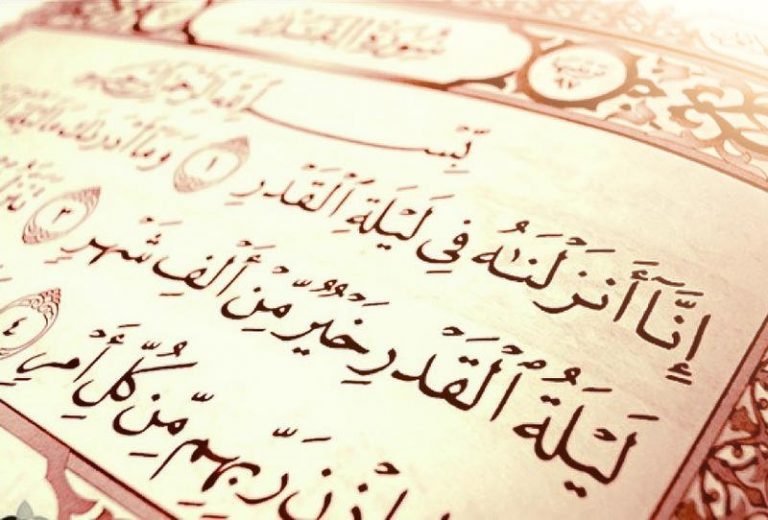 سُورَةُ الْقَدْرِ
بِّسْمِ اللَّهِ الرَّحْمَٰنِ الرَّحِيمِ
إِنَّآ أَنزَلْنَٰهُ فِى لَيْلَةِ ٱلْقَدْرِ ١ وَمَآ أَدْرَىٰكَ مَا لَيْلَةُ
لَيْلَةُ ٱلْقَدْرِ خَيْرٌ مِّنْ أَلْفِ شَهْرٍ ٣ تَنَزَّلُ
إِذْنِ رَبِّهِم مِّن كُلِّ أَمْرٍ ٤